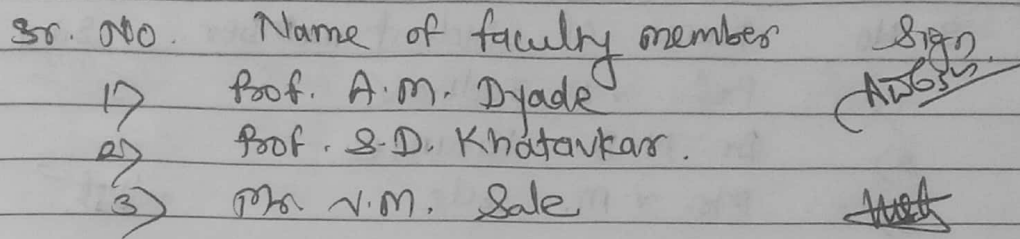 Sr. No. Name of faculty member Sign.
1) Prof. A.M. Dyade
2) Prof. S.D. Khatavkar.
3) Mr. V.M. Sale